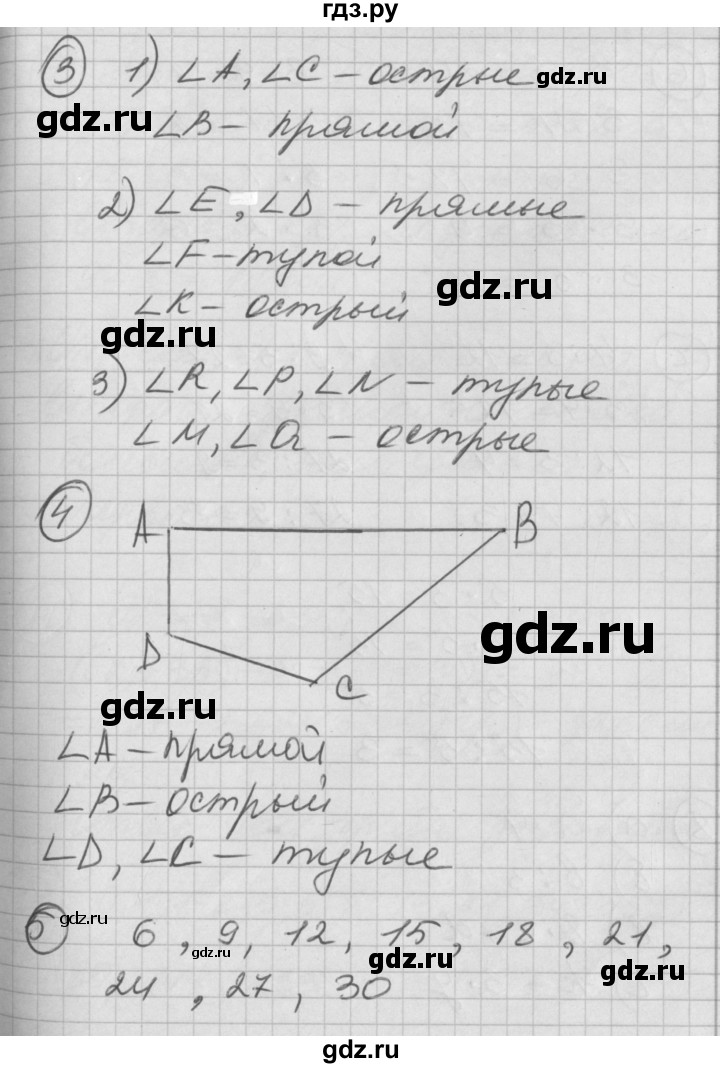 гдз.ру
③ 1) ∠A, ∠C – острые gdz.ru
gdz.ru ∠B – прямой
2) ∠E, ∠D – прямые
∠F – тупой
gdz.ru
∠K – острый
gdz.ru
3) ∠R, ∠P, ∠N – тупые
∠M, ∠Q – острые
④ A B
gdz.ru
D C
gdz.ru
∠A – прямой
∠B – острый
∠D, ∠C – тупые
⑤ gdz.ru 6, 9, 12, 15, 18, 21,
gdz.ru gdz.ru gdz.ru
24, 27, 30
gdz.ru